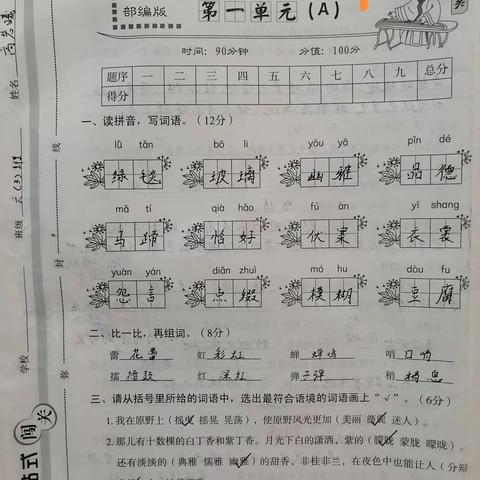 部编版 第一单元(A)
时间：90分钟 分值：100分
题序 一 二 三 四 五 六 七 八 九 总分
得分
一、读拼音，写词语。(12分)
lǜ tǎn bō li yōu yǎ pǐn dé
绿毯 玻璃 幽雅 品德
mǎ tí qià hǎo fú àn yī shang
马蹄 恰好 伏案 衣裳
yuàn yán diǎn zhuì mó hu dòu fu
怨言 点缀 模糊 豆腐
二、比一比，再组词。(8分)
蕾 花蕾 虹 彩虹 蝉 蝉鸣 哨 口哨
擂 擂鼓 红 深红 弹 子弹 稍 稍息
三、请从括号里所给的词语中，选出最符合语境的词语画上"√"。(6分)
1.我在原野上(摇曳 摇晃 晃荡)，使原野风光更加(美丽 旖旎 迷人)。
2.那儿有十数棵的白丁香和紫丁香。月光下白的潇洒，紫的(朦胧 蒙胧 曚昽)。
还有淡淡的(典雅 儒雅 幽雅)的甜香，非桂非兰，在夜色中也能让人(分辨
姓名
班级 六(3)班
学校
线
封
弥
站式 闯关